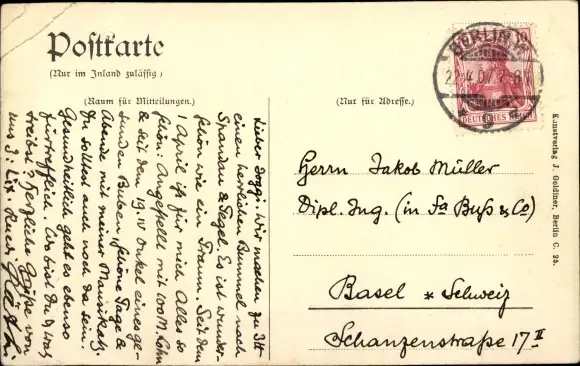 Postkarte
(Nur im Inland zulässig)
(Raum für Mitteilungen.)
(Nur für Adresse.)
BERLIN W.
DEUTSCHES REICH
10
Lieber Joggi Wir machen zu III
einen herrlichen Bummel nach
Spandau & Tegel. Es ist wunder-
schön wie ein Traum. Seit dem
1 April ist für mich Alles so
schön: Angestellt mit 100 M Lohn
& seit dem 19. IV Onkel eines ge-
sunden Buben. Schöne Tage &
Abende mit meiner Musikatz.
Du solltest auch noch da sein.
Gesundheitlich geht es ebenso
fürtrefflich. Wo bist Du & was
treibst Herzliche Grüße von
uns 3:
Herrn Jakob Müller
Dipl. Ing. (in Fa Buß & Co)
Basel * Schweiz
Schanzenstraße 17 II
Kunstverlag J. Goldiner, Berlin C. 25.